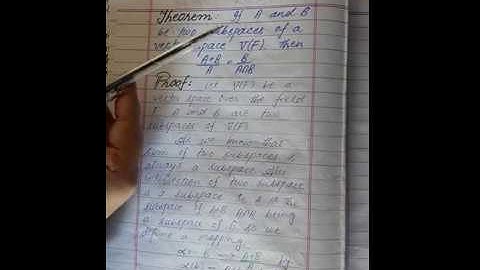 Theorem: If A and B
be two subspaces of a
vector space V(F). Then
A+B / A = B / A∩B
Proof: Let V(F) be a
vector space over the field
F. A and B are two
subspaces of V(F)
As we know that
sum of two subspaces is
always a subspace also
intersection of two subspace
is a subspace so A is the
subspace of A+B A∩B being
a subspace of B so we
define a mapping